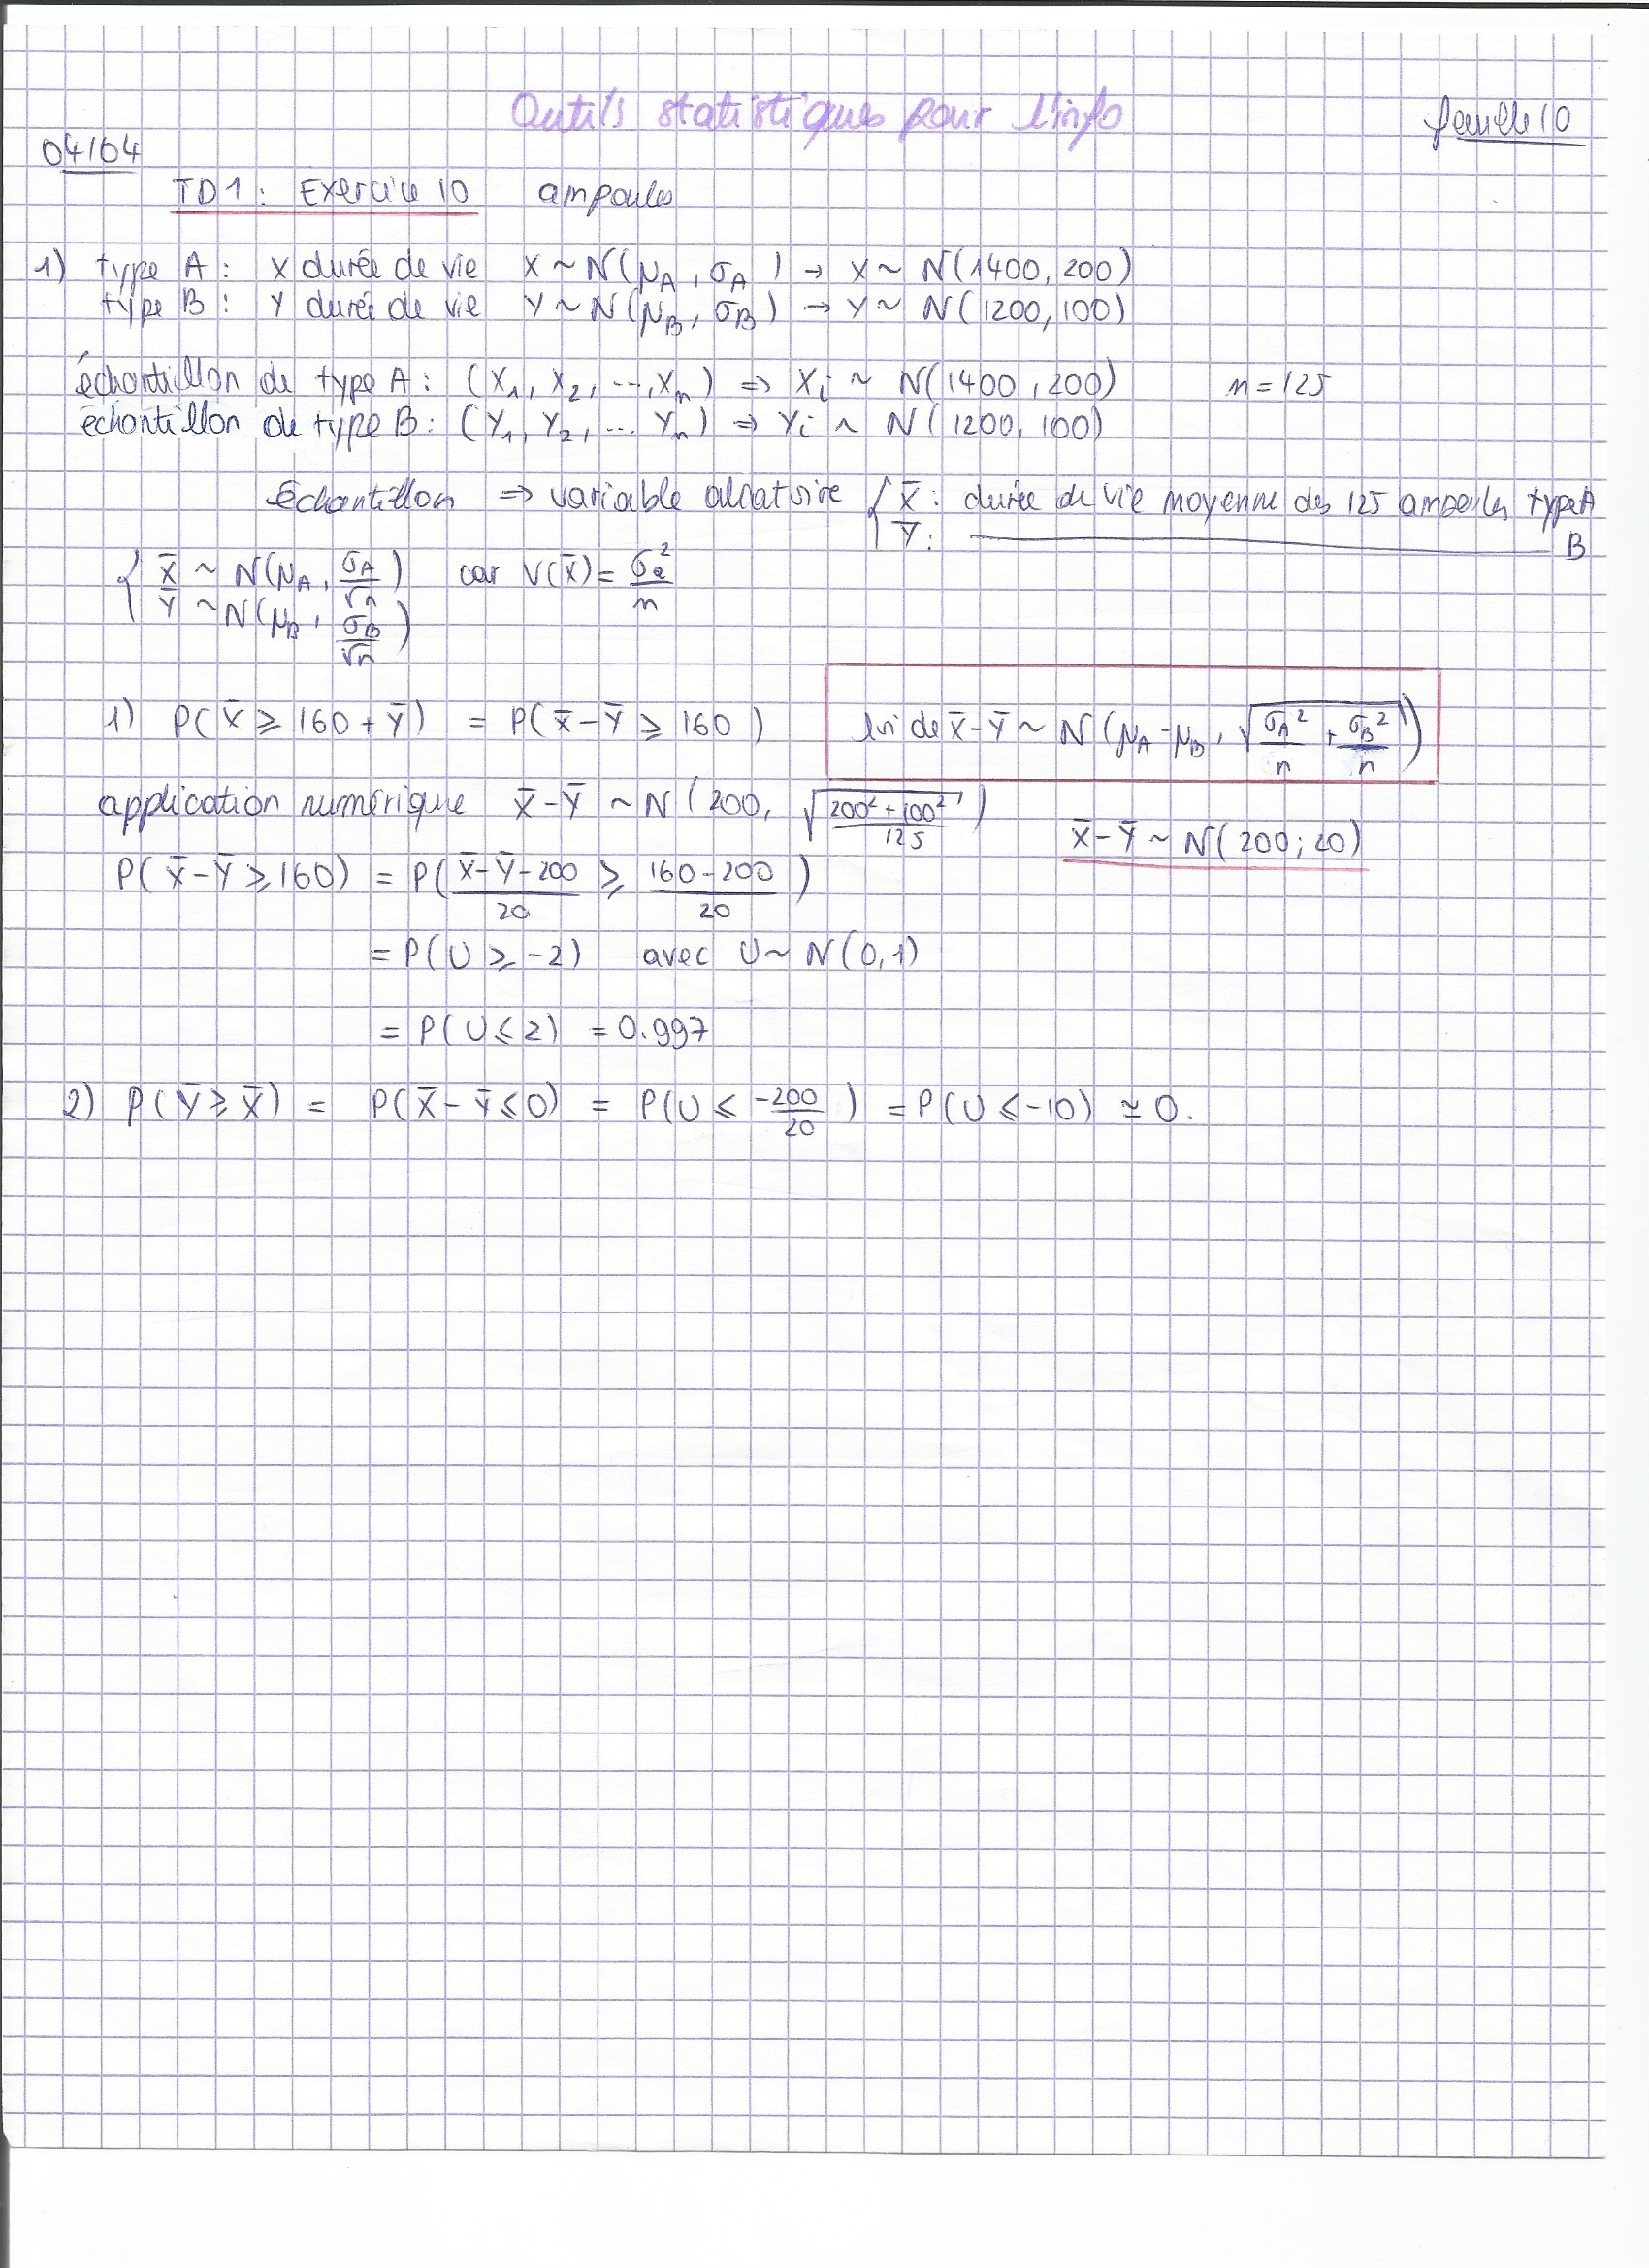 Outils statistiques pour l'info
feuille 10
04/04
TD1 : Exercice 10 ampoules
1) type A : X durée de vie X ~ N(μA, σA) → X ~ N(1400, 200)
type B : Y durée de vie Y ~ N(μB, σB) → Y ~ N(1200, 100)
échantillon de type A : (X1, X2, ..., Xn) ⇒ Xi ~ N(1400, 200) n = 125
échantillon de type B : (Y1, Y2, ... Yn) ⇒ Yi ~ N(1200, 100)
Échantillon ⇒ variable aléatoire { X̄ : durée de vie moyenne des 125 ampoules type A
Ȳ : ———— B
{ X̄ ~ N(μA, σA/√n) car V(X̄) = σa²/n
Ȳ ~ N(μB, σB/√n)
1) P(X̄ ⩾ 160 + Ȳ) = P(X̄ - Ȳ ⩾ 160) loi de X̄ - Ȳ ~ N(μA - μB, √(σA²/n + σB²/n))
application numérique X̄ - Ȳ ~ N(200, √((200² + 100²)/125))
X̄ - Ȳ ~ N(200; 20)
P(X̄ - Ȳ ⩾ 160) = P((X̄ - Ȳ - 200)/20 ⩾ (160 - 200)/20)
= P(U ⩾ -2) avec U ~ N(0,1)
= P(U ⩽ 2) = 0.997
2) P(Ȳ ⩾ X̄) = P(X̄ - Ȳ ⩽ 0) = P(U ⩽ -200/20) = P(U ⩽ -10) ≃ 0.